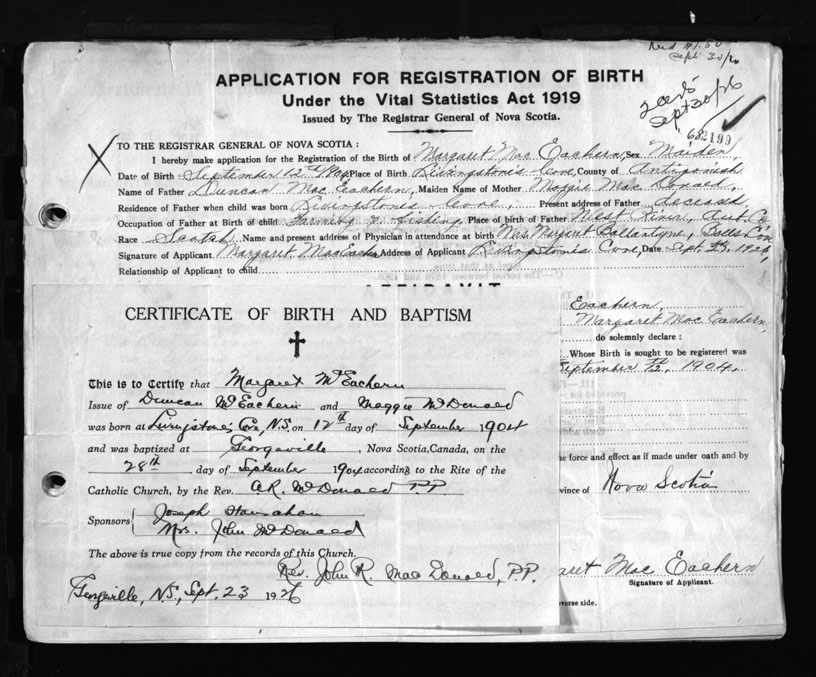 Sept 30/26
APPLICATION FOR REGISTRATION OF BIRTH
Under the Vital Statistics Act 1919
Issued by The Registrar General of Nova Scotia.
Sept 30/26
682199
TO THE REGISTRAR GENERAL OF NOVA SCOTIA :
I hereby make application for the Registration of the Birth of Margaret Mac Eachern, Sex Maiden,
Date of Birth September 12th 1904, Place of Birth Livingstone's Cove, County of Antigonish
Name of Father Duncan Mac Eachern, Maiden Name of Mother Maggie Mac Donald,
Residence of Father when child was born Livingstones Cove, Present address of Father deceased,
Occupation of Father at Birth of child Farming & fishing, Place of birth of Father West River, Ant. Co
Race Scotch Name and present address of Physician in attendance at birth Mrs. Margaret Ballantyne,
Signature of Applicant Margaret MacEachern Address of Applicant Livingstones Cove, Date Sept. 1926,
Relationship of Applicant to child
AFFIDAVIT
Eachern,
Margaret Mac Eachern,
do solemnly declare :
Whose Birth is sought to be registered was
September 12th, 1904,
he force and effect as if made under oath and by
vince of Nova Scotia
aret Mac Eachern
Signature of Applicant.
everse side.
CERTIFICATE OF BIRTH AND BAPTISM
This is to Certify that Margaret McEachern
Issue of Duncan McEachern and Maggie McDonald
was born at Livingstone's Cove, N.S. on 12th day of September 1904
and was baptized at Georgeville, Nova Scotia, Canada, on the
28th day of September 1904 according to the Rite of the
Catholic Church, by the Rev. A.R. McDonald P.P.
Sponsors { Joseph Hanrahan
Mrs. John McDonald
The above is true copy from the records of this Church.
Rev. John R. Mac Donald, P.P.
Georgeville, N.S., Sept. 23 1926